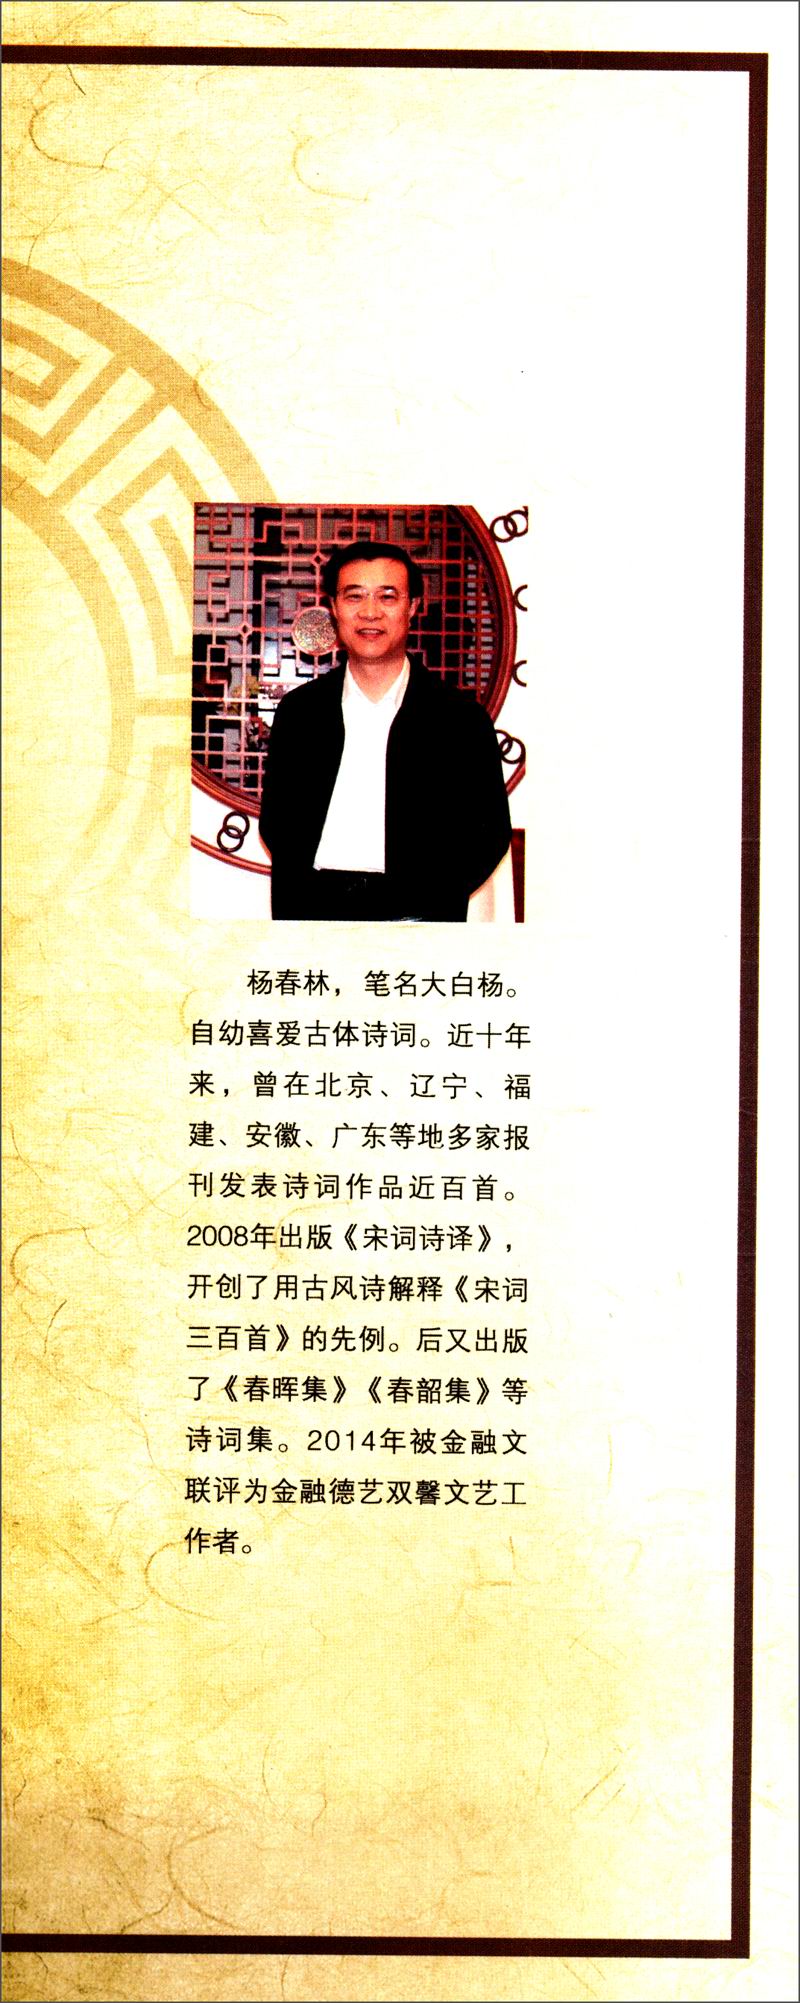 杨春林，笔名大白杨。
自幼喜爱古体诗词。近十年
来，曾在北京、辽宁、福
建、安徽、广东等地多家报
刊发表诗词作品近百首。
2008年出版《宋词诗译》，
开创了用古风诗解释《宋词
三百首》的先例。后又出版
了《春晖集》《春韶集》等
诗词集。2014年被金融文
联评为金融德艺双馨文艺工
作者。